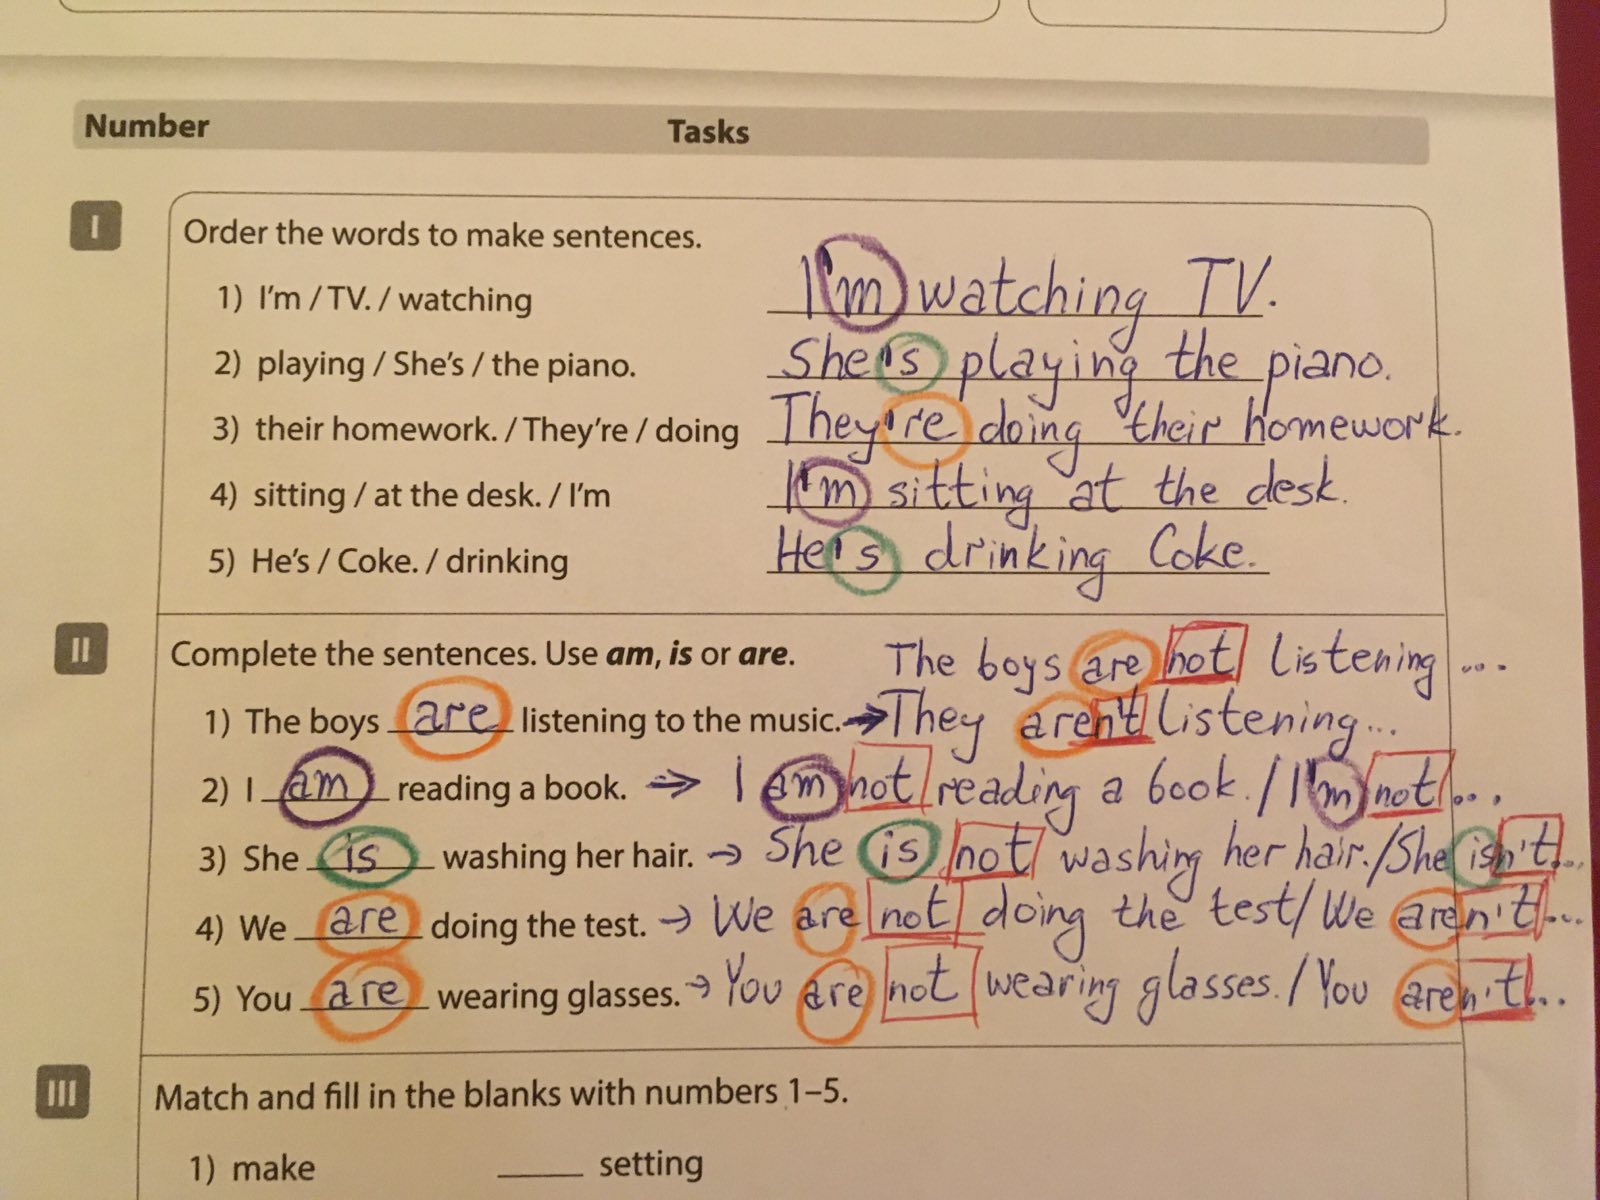 Number Tasks
I Order the words to make sentences.
1) I'm / TV. / watching I'm watching TV.
2) playing / She's / the piano. She's playing the piano.
3) their homework. / They're / doing They're doing their homework.
4) sitting / at the desk. / I'm I'm sitting at the desk.
5) He's / Coke. / drinking He's drinking Coke.
II Complete the sentences. Use am, is or are. The boys are not listening ...
1) The boys are listening to the music. → They aren't listening...
2) I am reading a book. → I am not reading a book. / I'm not ...
3) She is washing her hair. → She is not washing her hair. / She isn't...
4) We are doing the test. → We are not doing the test / We aren't ...
5) You are wearing glasses. → You are not wearing glasses. / You aren't...
III Match and fill in the blanks with numbers 1–5.
1) make ____ setting